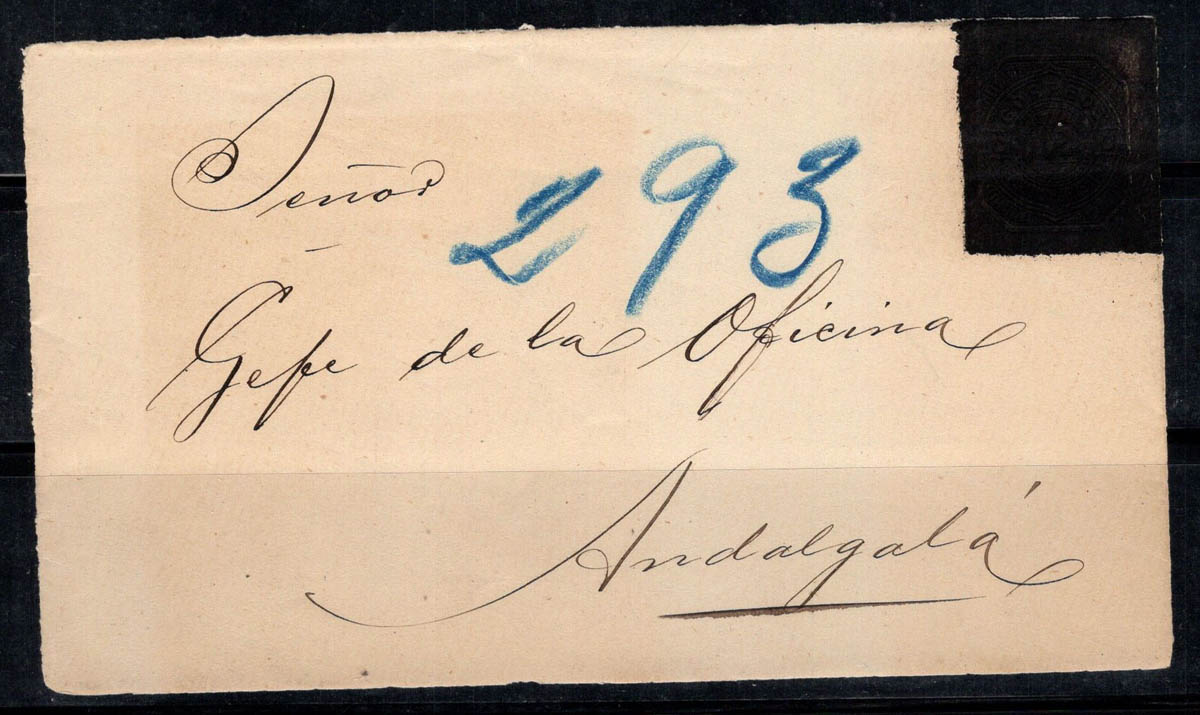 Señor
293
Gefe de la Oficina
Andalgalá